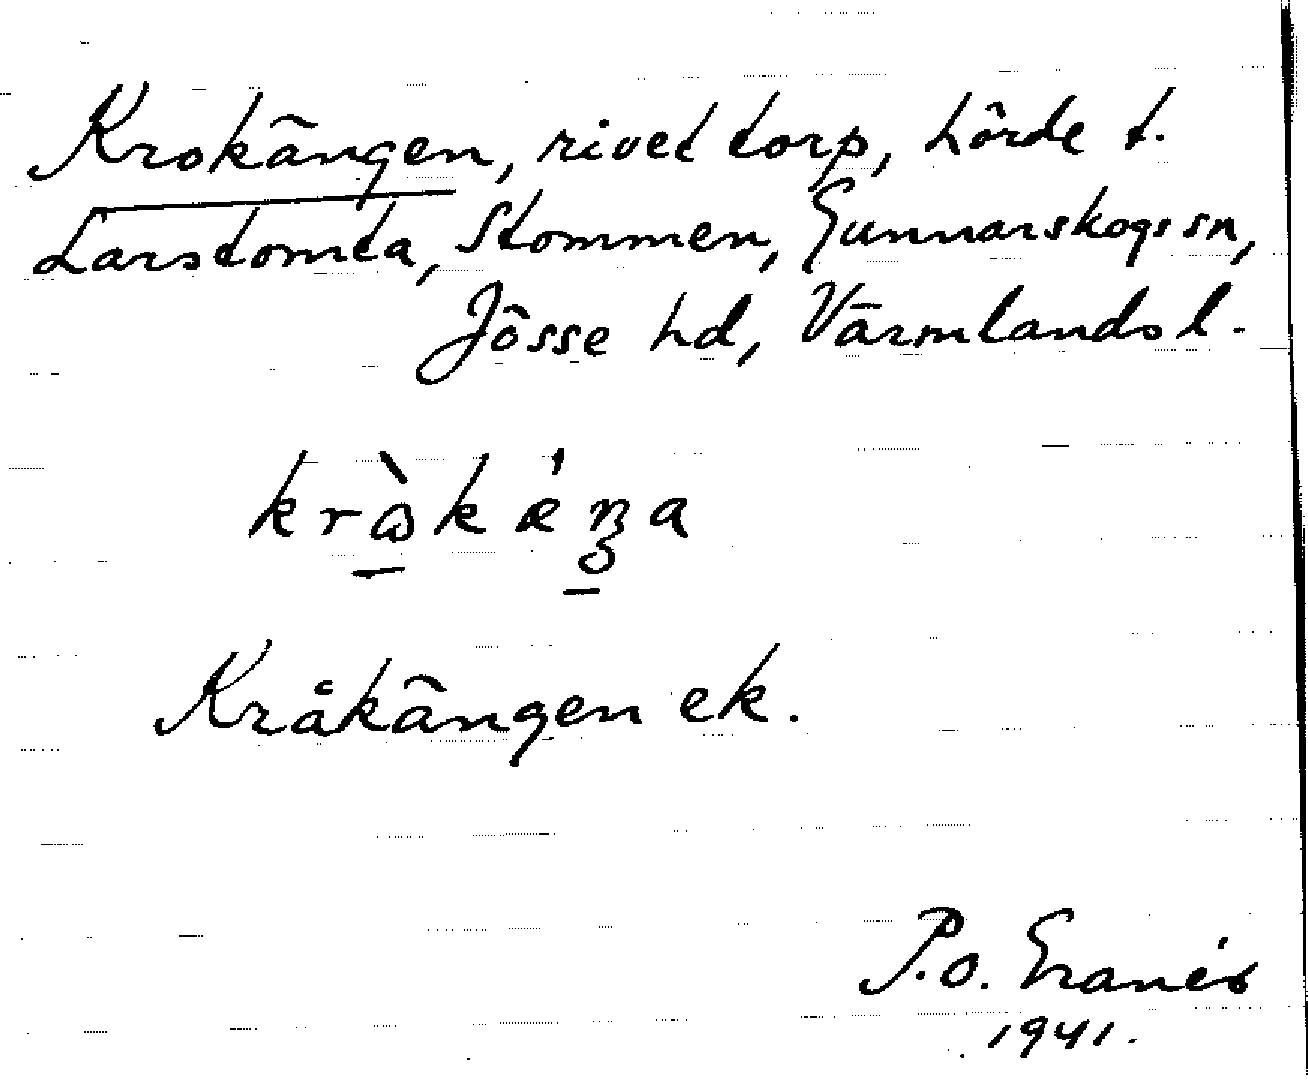 Krokängen, rivet torp, hörde t.
Larstomta, Stommen, Gunnarskogs sn,
Jösse hd, Värmlands l.
Kråkängen ek.
P.O. Eranés
1941.